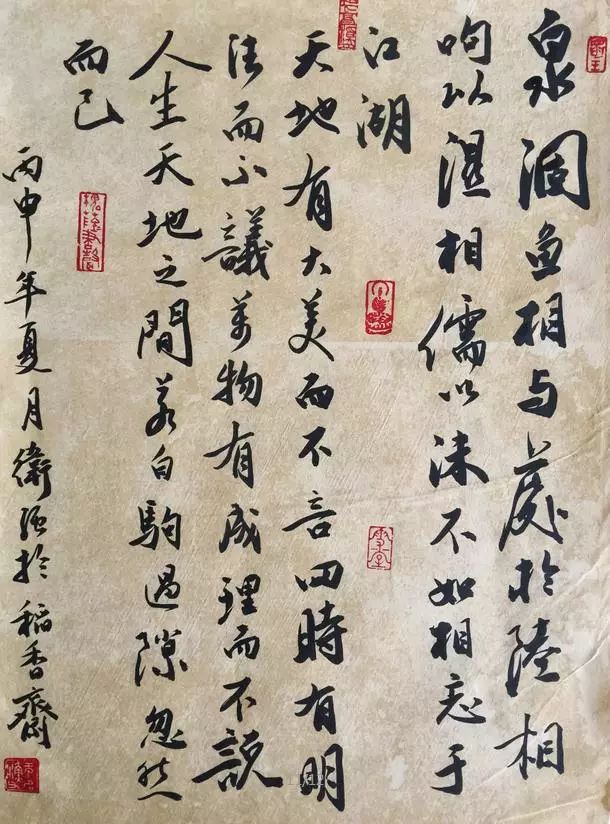 泉涸鱼相与處於陸相
呴以濕相儒以沫不如相忘于
江湖
天地有大美而不言四時有明
法而不議萬物有成理而不説
人生天地之間若白駒過隙忽然
而已
丙申年夏月衛强於稻香齋